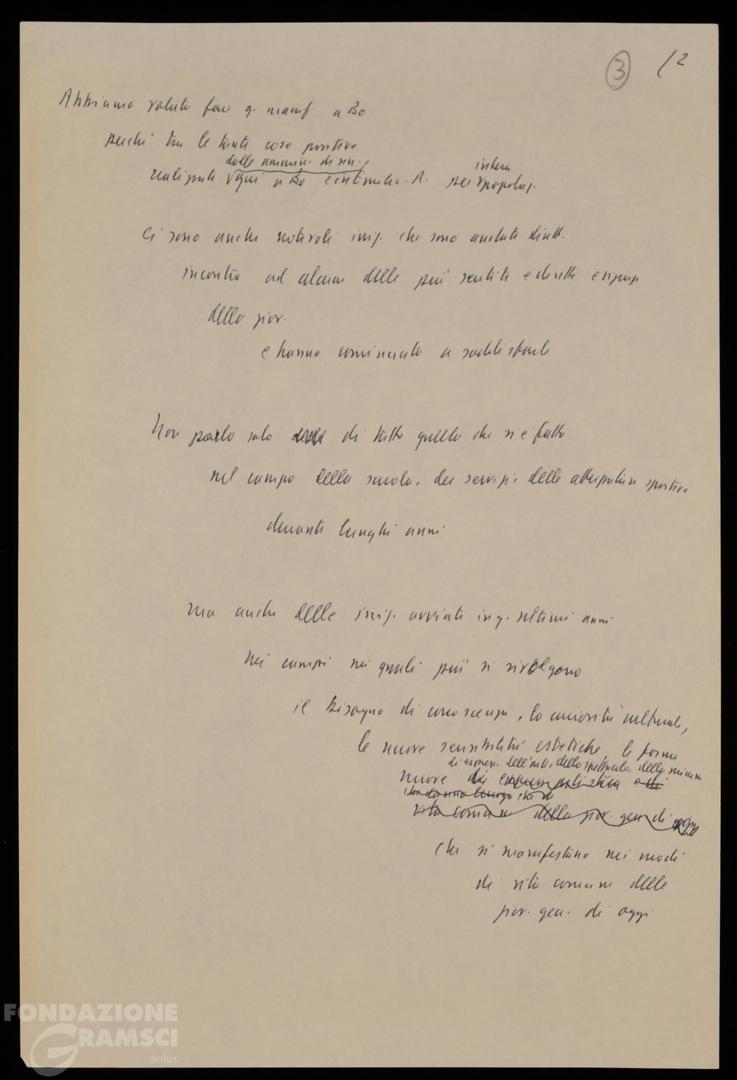 3 /2
Abbiamo voluto fare q. manif. a Bo
perché tra le tante cose positive
dalle ammin. di sin. intera
realizzate oggi a Bo e in Emilia-R. per popolaz.
Ci sono anche notevoli iniz. che sono andate dirett.
incontro ad alcune delle più sentite e dirette esigenze
della giov.
e hanno cominciato a soddisfarle
Non parlo solo di tutto quello che si è fatto
nel campo della scuola, dei servizi, delle attrezzature sportive
durante lunghi anni
ma anche delle iniz. avviate in q. ultimi anni
nei campi nei quali più si rivolgono
il bisogno di conoscenza, la curiosità culturale,
le nuove sensibilità estetiche, le forme
di espress. dell'arte, dello spettacolo, della musica
nuove di espress. artistica
vita comune della giov. gen. di oggi
che si manifestano nei modi
di vita comune delle
giov. gen. di oggi
FONDAZIONE
GRAMSCI
onlus